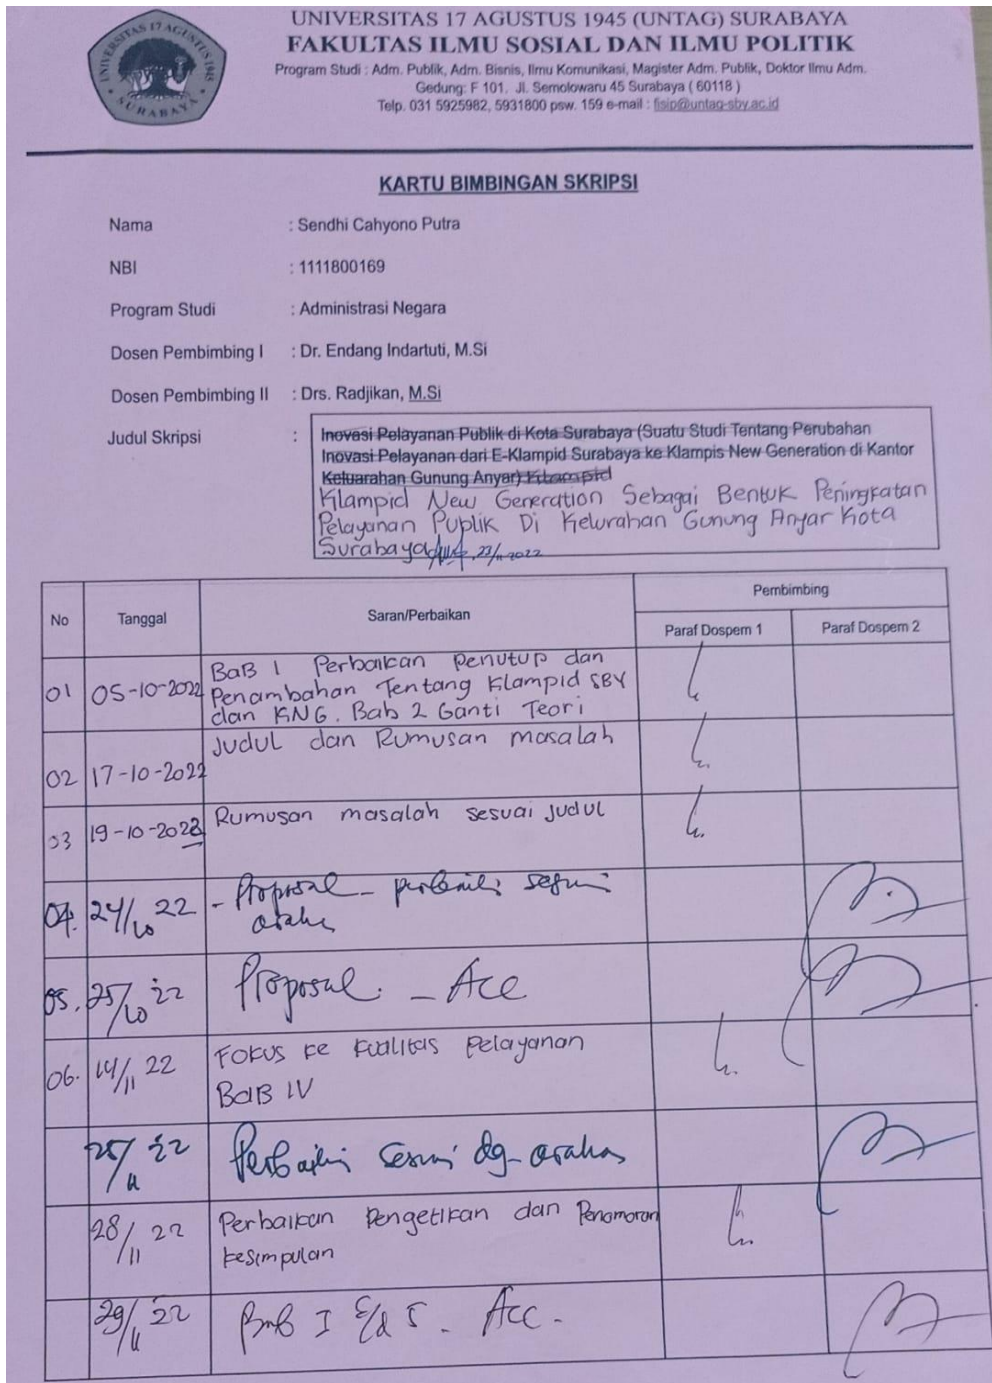 UNIVERSITAS 17 AGUSTUS 1945
SURABAYA
UNIVERSITAS 17 AGUSTUS 1945 (UNTAG) SURABAYA
FAKULTAS ILMU SOSIAL DAN ILMU POLITIK
Program Studi : Adm. Publik, Adm. Bisnis, Ilmu Komunikasi, Magister Adm. Publik, Doktor Ilmu Adm.
Gedung: F 101. Jl. Semolowaru 45 Surabaya ( 60118 )
Telp. 031 5925982, 5931800 psw. 159 e-mail : fisip@untag-sby.ac.id
KARTU BIMBINGAN SKRIPSI
Nama : Sendhi Cahyono Putra
NBI : 1111800169
Program Studi : Administrasi Negara
Dosen Pembimbing I : Dr. Endang Indartuti, M.Si
Dosen Pembimbing II : Drs. Radjikan, M.Si
Judul Skripsi : Inovasi Pelayanan Publik di Kota Surabaya (Suatu Studi Tentang Perubahan
Inovasi Pelayanan dari E-Klampid Surabaya ke Klampis New Generation di Kantor
Keluarahan Gunung Anyar)
Klampid New Generation Sebagai Bentuk Peningkatan
Pelayanan Publik Di Kelurahan Gunung Anyar Kota
Surabaya 23/11 2022
No Tanggal Saran/Perbaikan Pembimbing
Paraf Dospem 1 Paraf Dospem 2
01 05-10-2022 BaB 1 Perbaikan Penutup dan
Penambahan Tentang Klampid SBY
dan KNG. Bab 2 Ganti Teori
02 17-10-2022 Judul dan Rumusan masalah
03 19-10-2022 Rumusan masalah sesuai Judul
04. 24/10 22 - Proposal - perbaiki sesuai
arahan
05. 25/10 22 Proposal. - Acc
06. 14/11 22 Fokus ke Kualitas Pelayanan
BaB IV
25/11 22 Perbaiki sesuai dg arahan
28/11 22 Perbaikan Pengetikan dan Penomoran
kesimpulan
29/11 22 Bab I s/d 5 - Acc.